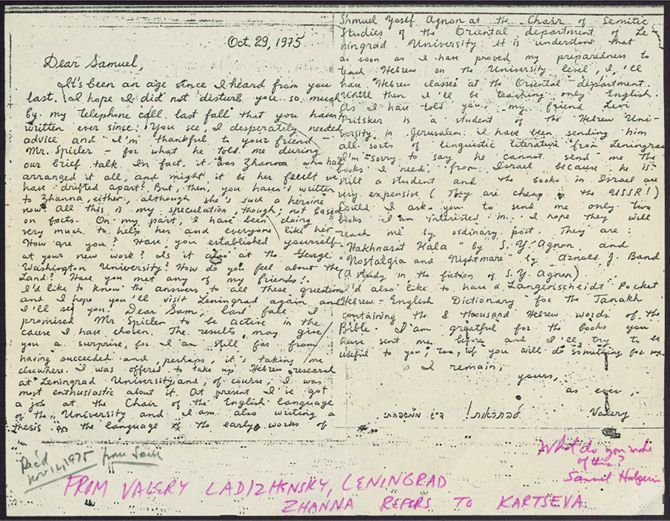 Oct. 29, 1975
Dear Samuel,
It's been an age since I heard from you
last. I hope I did not disturb you so much
by my telephone call last fall that you haven't
written ever since. You see, I desperately needed
advice and I'm thankful to your friend -
Mr. Spieler - for what he told me during
our brief talk. In fact, it was Zhanna who had
arranged it all, and might it be her fault we
have drifted apart? But, then, you haven't written
to Zhanna, either, although she's such a heroine
now. All this is my speculation though, not based
on facts. On my part, I have been doing
very much to help her and everyone like her.
How are you? Have you established yourself
at your new work? Is it also at the George
Washington University? How do you feel about the
Land? Have you met any of my friends?
I'd like to know the answers to all these questions
and I hope you'll visit Leningrad again and
I'll see you. Dear Sam, last fall I
promised Mr Spieler to be active in the
cause I have chosen. The results may give
you a surprise, for I am still far from
having succeeded and, perhaps, it's taking me
elsewhere. I was offered to take up Hebrew research
at Leningrad University and, of course, I was
most enthusiastic about it. At present I've got
a job at the Chair of the English language
of the University and I am also writing a
thesis on the language of the early works of
Shmuel Yosef Agnon at the Chair of Semitic
Studies of the Oriental department of Le-
ningrad University. It is understood that
as soon as I have proved my preparedness to
teach Hebrew on the University level, I'll
have Hebrew classes at the Oriental department.
Until then I'll be teaching only English.
As I have told you, my friend Levi
Pritsker is a student of the Hebrew Uni-
versity in Jerusalem. I have been sending him
all sorts of linguistic literature from Leningrad.
I'm sorry to say he cannot send me the
books I need from Israel because he is
still a student and the books in Israel are
very expensive (They are cheap in the USSR!)
Could I ask you to send me only two
books I am interested in. I hope they will
reach me by ordinary post. They are:
Hakhnasat Kala by S. Y. Agnon and
Nostalgia and Nightmare by Arnold J. Band
(A study in the fiction of S. Y. Agnon).
I'd also like to have a Langenscheidt Pocket
Hebrew-English Dictionary for the Tanakh
containing the 8 thousand Hebrew words of the
Bible. I am greatful for the books you
have sent me before and I'll try to be
useful to you, too, if you will do something for me.
I remain,
yours,
as ever,
Valery
להתראות!
Rec'd
Nov 14, 1975 from Sam
What do you make
of this
Samuel Halperin
FROM VALERY LADIZHENSKY, LENINGRAD
ZHANNA REFERS TO KARTSEVA